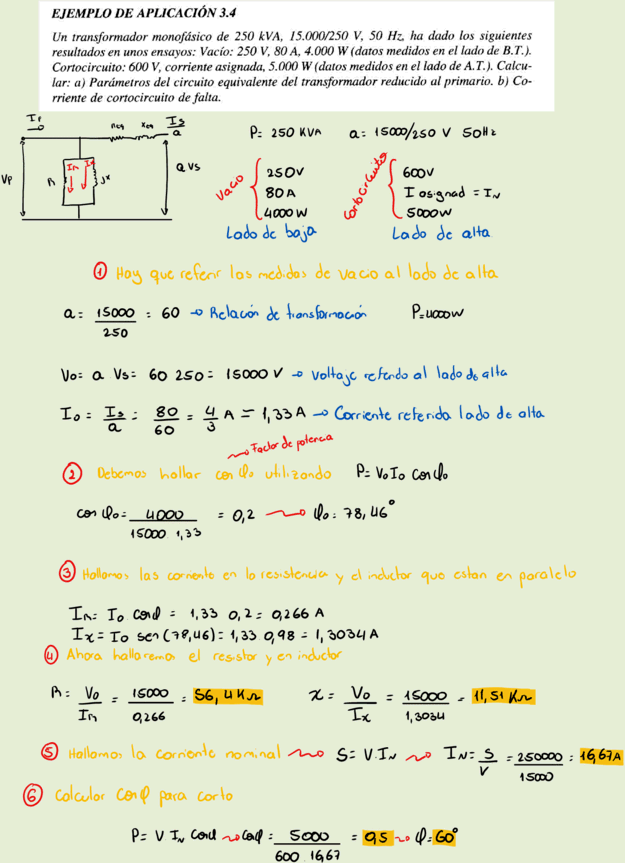 EJEMPLO DE APLICACIÓN 3.4
Un transformador monofásico de 250 kVA, 15.000/250 V, 50 Hz, ha dado los siguientes
resultados en unos ensayos: Vacío: 250 V, 80 A, 4.000 W (datos medidos en el lado de B.T.).
Cortocircuito: 600 V, corriente asignada, 5.000 W (datos medidos en el lado de A.T.). Calcu-
lar: a) Parámetros del circuito equivalente del transformador reducido al primario. b) Co-
rriente de cortocircuito de falta.
IP
Is/a
Req Xeq
VP
R
In Ix
jx
a Vs
P= 250 KVA a= 15000/250 V 50Hz
Vacio
250V
80A
4000 W
Lado de baja
Corto circuito
600V
I asignad = IN
5000W
Lado de alta
① Hay que referir las medidas de vacio al lado de alta
a= 15000/250 = 60 → Relación de transformación P=4000W
Vo= a Vs= 60 250= 15000 V → voltaje referido al lado de alta
Io= Is/a = 80/60 = 4/3 A = 1,33 A → Corriente referida lado de alta
Factor de potencia
② Debemos hallar cos φo utilizando P= Vo Io cos φo
cos φo= 4000/15000 1,33 = 0,2 → φo= 78,46°
③ Hallamos las corriente en la resistencia y el inductor que estan en paralelo
In= Io cosφ = 1,33 0,2= 0,266 A
Ix= Io sen(78,46)= 1,33 0,98= 1,3034 A
④ Ahora hallaremos el resistor y en inductor
R= Vo/In = 15000/0,266 = 56,4 KΩ x= Vo/Ix = 15000/1,3034 = 11,51 KΩ
⑤ Hallamos la corriente nominal → S= V.IN → IN= S/V = 250000/15000 = 16,67A
⑥ calcular cosφ para corto
P= V IN cosφ → cosφ= 5000/600 16,67 = 0,5 → φ= 60°